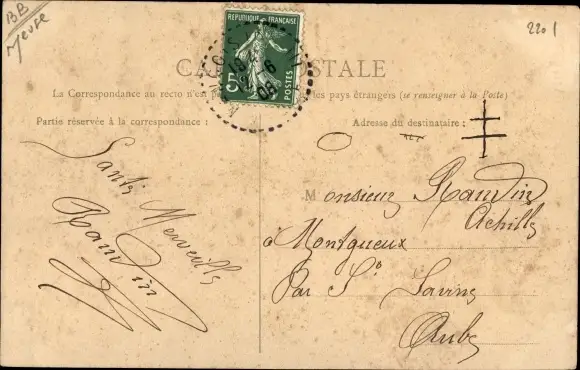 BB
Meuse
2201
RÉPUBLIQUE FRANÇAISE
5c
POSTES
CA POSTALE
La Correspondance au recto n'en pa les pays étrangers (se renseigner à la Poste)
Partie réservée à la correspondance :
Adresse du destinataire :
Santé Merveille
Raudin
Monsieur Raudin
Achille
à Montgueux
Par St Savine
Aube